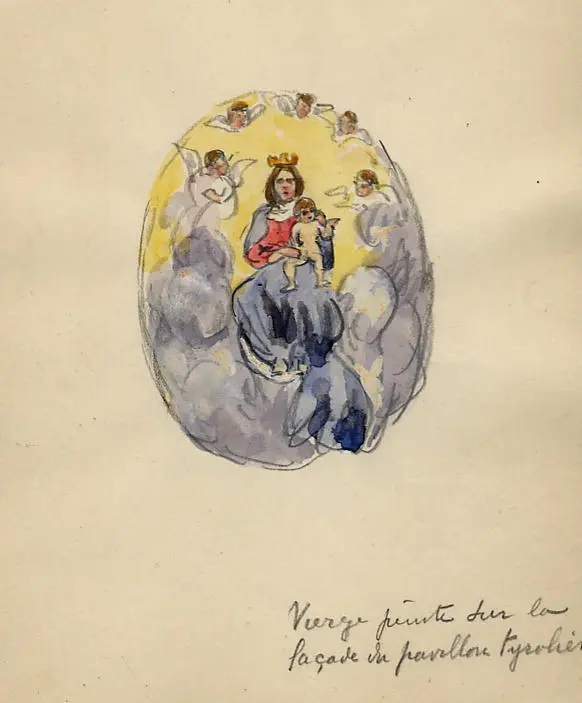 Vierge peinte sur la
façade du pavillon tyrolien